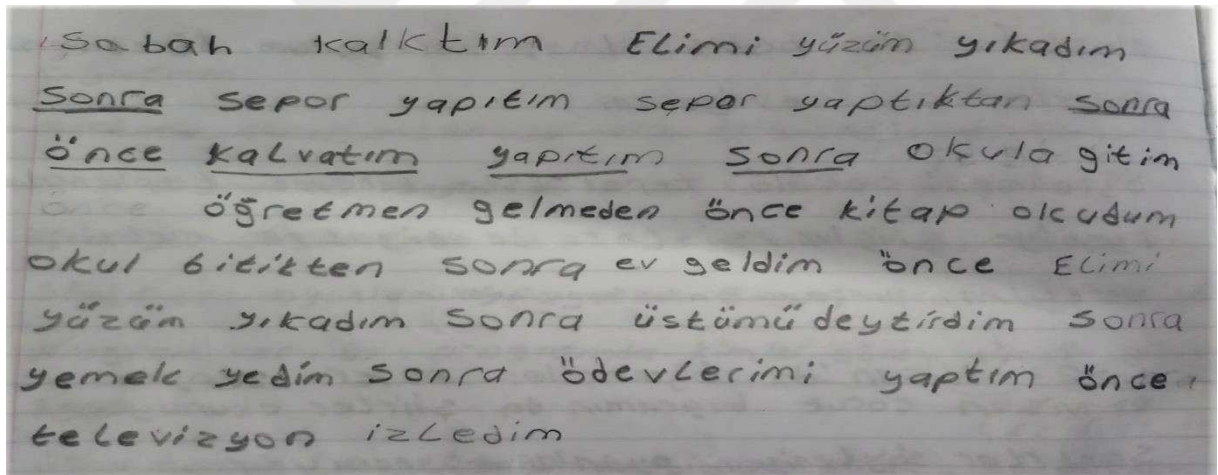 Sabah kalktım Elimi yüzüm yıkadım
Sonra sepor yapıtım sepor yaptıktan sonra
önce kalvatım yapıtım sonra okula gitim
önce öğretmen gelmeden önce kitap okudum
okul bitikten sonra ev geldim önce Elimi
yüzüm yıkadım sonra üstümü deytirdim sonra
yemek yedim sonra ödevlerimi yaptım önce
televizyon izledim